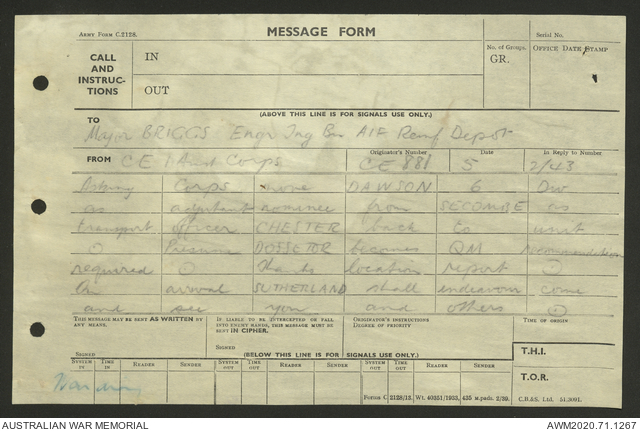 ARMY FORM C.2128.
MESSAGE FORM
Serial No.
CALL AND INSTRUCTIONS
IN
OUT
No. of Groups.
GR.
OFFICE DATE STAMP
(ABOVE THIS LINE IS FOR SIGNALS USE ONLY.)
TO
Major BRIGGS Engr Trg Bn AIF Reinf Depot
FROM
CE 1 Aust Corps
Originator's Number
CE 881
Date
5
In Reply to Number
2/43
Asking Corps move DAWSON 6 Div
as adjutant nominee from SECOMBE as
transport officer CHESTER back to unit
Presume DOSSETOR becomes QM recommendation
required thanks location report
On arrival SUTHERLAND shall endeavour come
and see you and others
THIS MESSAGE MAY BE SENT AS WRITTEN BY ANY MEANS.
SIGNED
IF LIABLE TO BE INTERCEPTED OR FALL INTO ENEMY HANDS, THIS MESSAGE MUST BE SENT IN CIPHER.
SIGNED
ORIGINATOR'S INSTRUCTIONS
DEGREE OF PRIORITY
TIME OF ORIGIN
(BELOW THIS LINE IS FOR SIGNALS USE ONLY.)
T.H.I.
SYSTEM IN TIME IN READER SENDER SYSTEM OUT TIME OUT READER SENDER SYSTEM OUT TIME OUT READER SENDER
T.O.R.
FORMS C 2128/13.
C.B.&S. Ltd.
AUSTRALIAN WAR MEMORIAL
AWM2020.71.1267